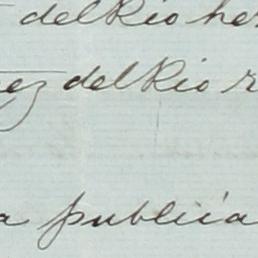 del Rio her
ez del Rio r
a publiia